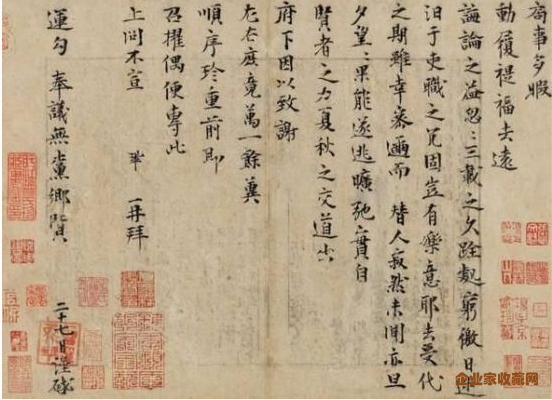 局事多暇
動履禔福去遠
誨論之益忽〻三載之久跧處窮徼日迷
汨于吏職之冗固豈有樂意耶去受代
之期雖幸密邇而替人寂然未聞亦旦
夕望〻果能遂逃曠弛實自
賢者之力夏秋之交道出
府下因以致謝
左右庶竟萬一餘冀
順序珍重前即
召擢偶便專此
上問不宣 鞏 再拜
運勾 奉議無黨鄉賢 二十七日謹啟
企业家收藏网